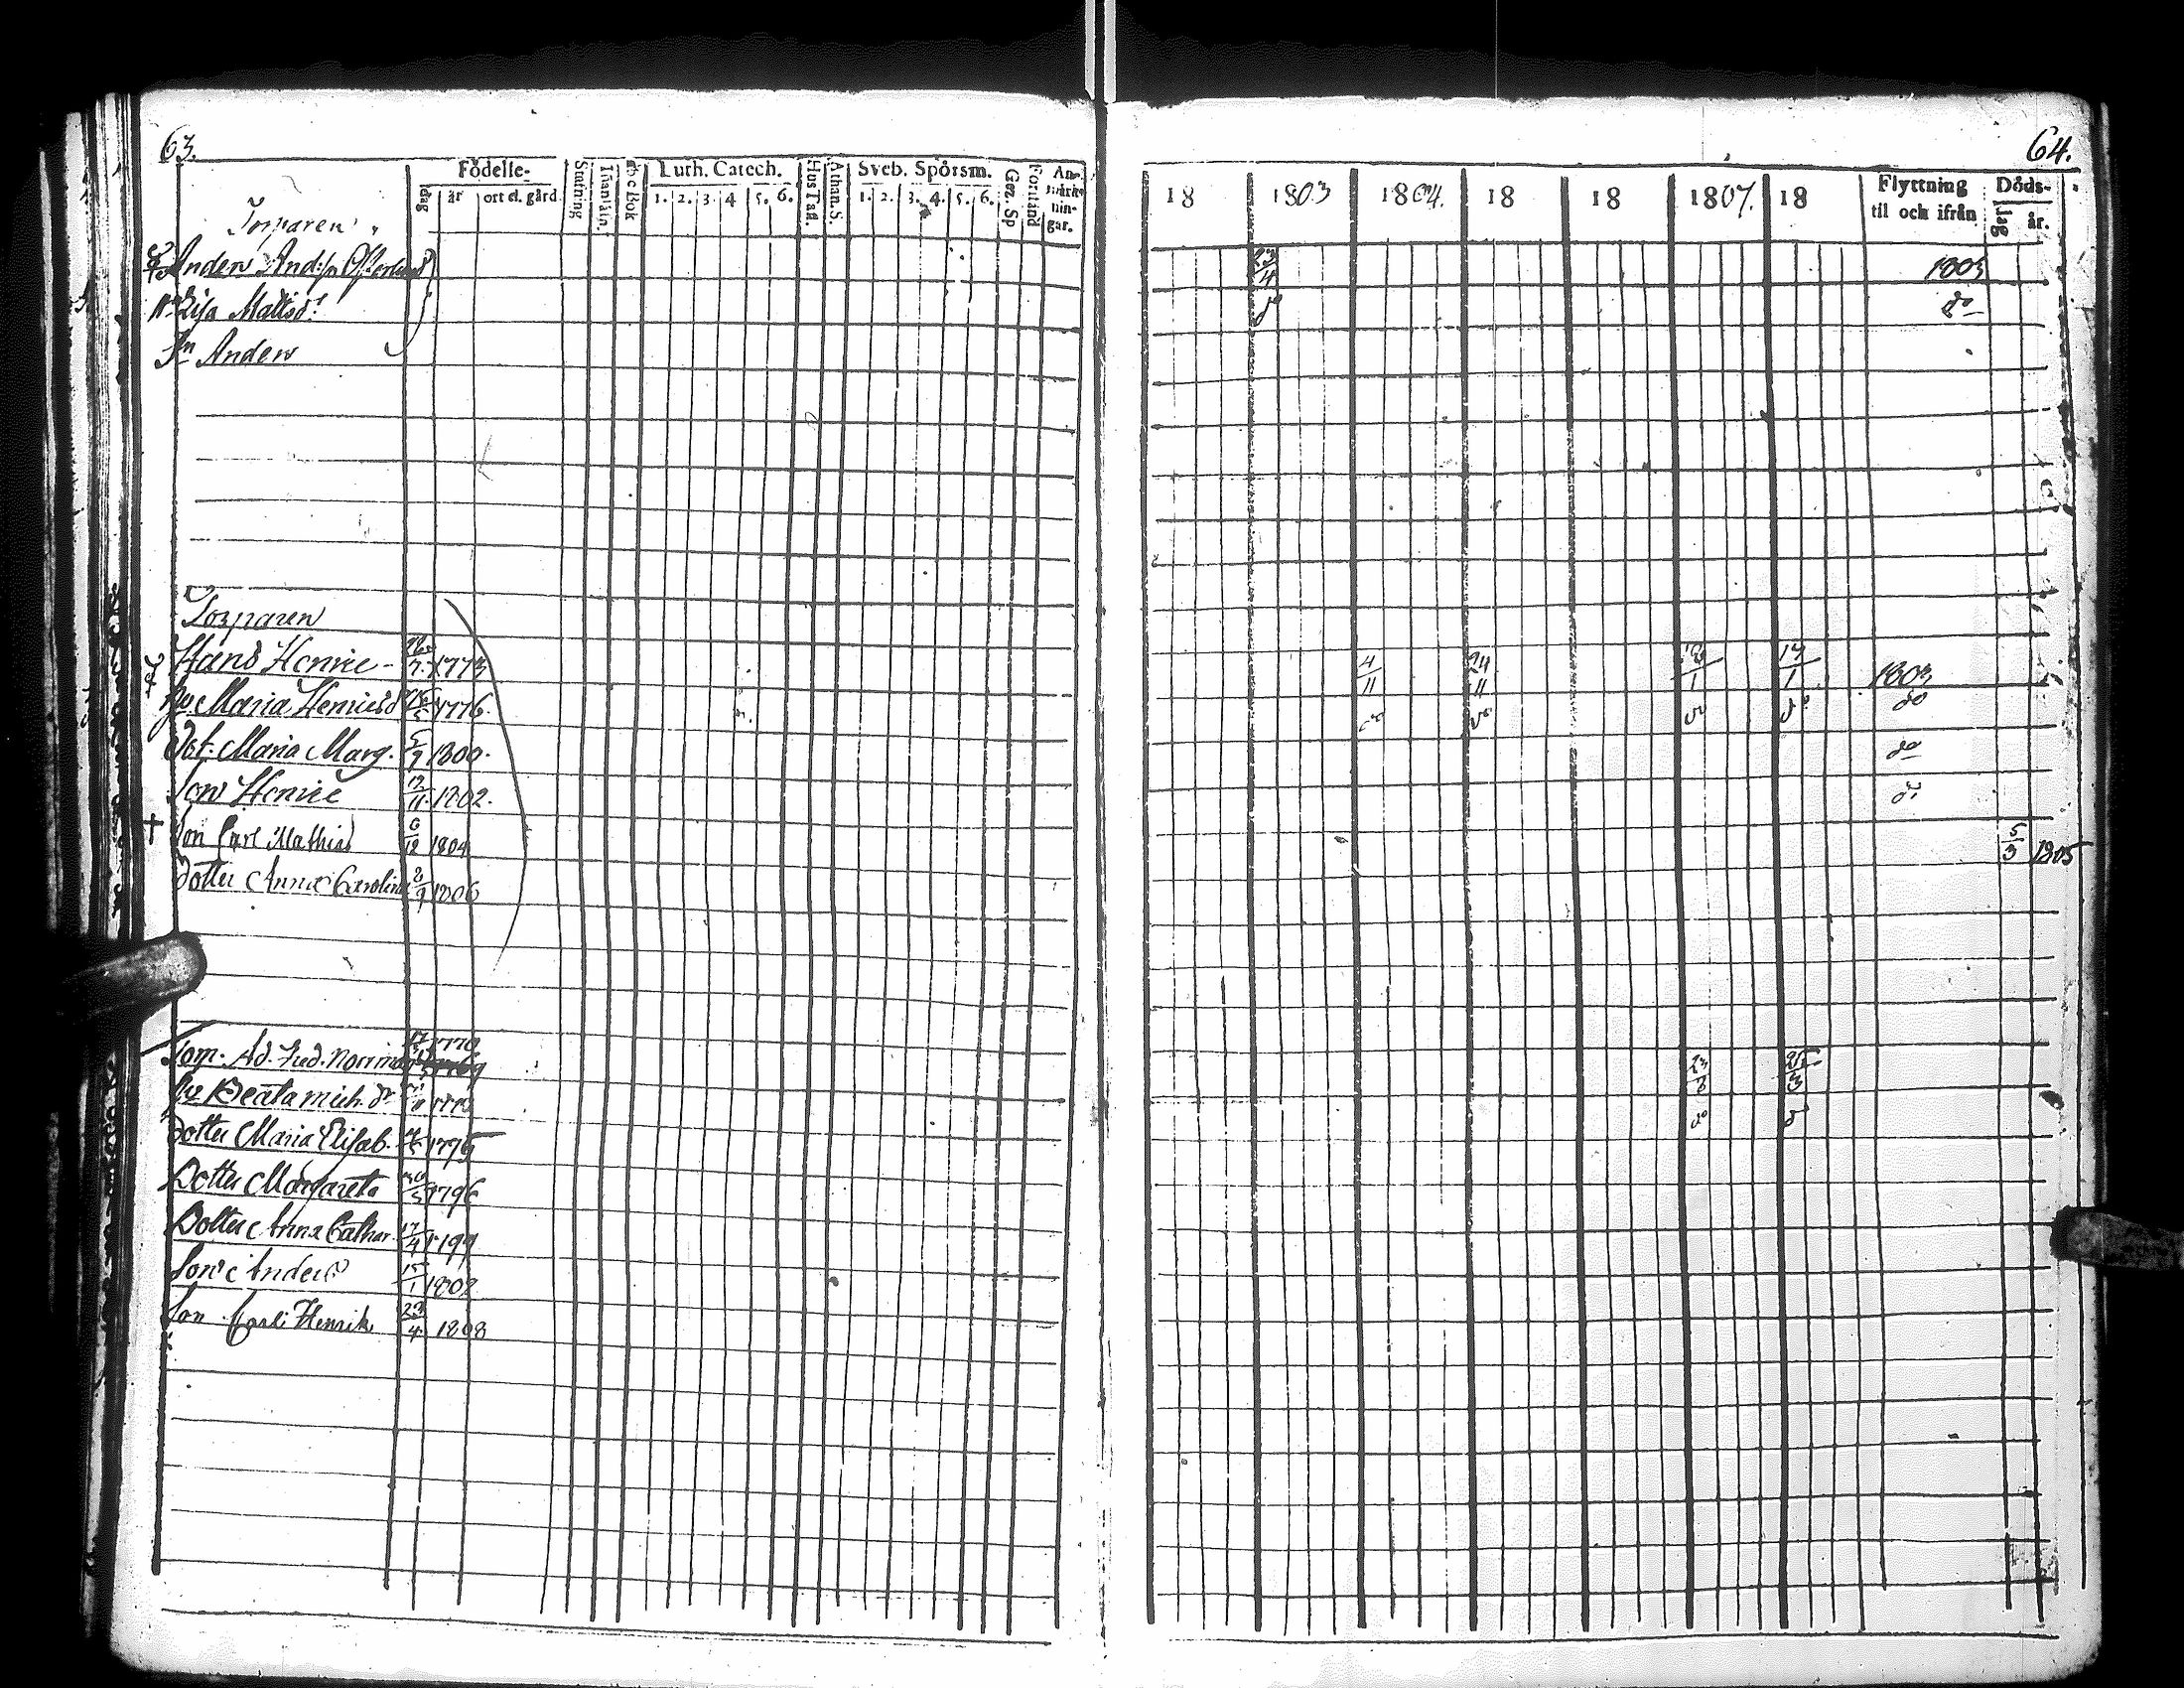 63.
Födelse-
dag år ort el. gård
Stafning
Innanläsn.
Abc Bok
Luth. Catech.
1. 2. 3. 4 5. 6.
Hus Tafl.
Athan. S.
Sveb. Spörsm.
1. 2. 3. 4. 5. 6.
Gez. Sp
Förstånd
An-
märk-
nin-
gar.
Torparen
Anders And:sn Österlund
Lisa Mattsd:r
Sn Anders
Torparen
Hans Henric - 7. 1773
Hu. Maria Henricsd 1776.
Dot: Maria Marg. 5/9 1800.
Son Henric 12/11 1802.
+ Son Carl Mathias 6/12 1804
Dotter Anna Carolina 2/9 1806
Tom. Ad. Fred. Norrman 1779
Hu Beata Mich. dr
Dotter Maria Elisab. 1795
Dotter Margareta 30/5 1796
Dotter Anna Cathar. 17/4 1799
Son Anders 15/1 1802
Son Carl Henrik 23/4 1808
64.
18 1803 1804. 18 18 1807. 18
Flyttning
til och ifrån
Döds-
dag år.
23/4 1803
do do
4/11 24/11 1803
do do do do do
do
do
5/3 1805
23/2 25/3
do do